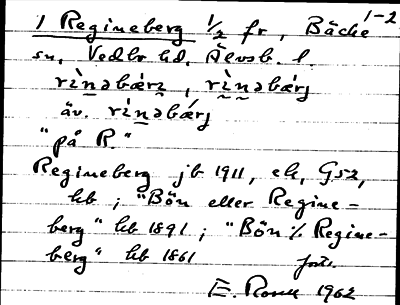 1-2
1 Regineberg 1/2 fr, Bäcke
sn, Vedbo hd, Älvsb. l.
rìnəbærj, rìnəbærj
äv. rìnəbærj
"på R."
Regineberg jb 1911, ek, G52,
hb ; "Bön eller Regine-
berg" hb 1891 ; "Bön l. Regine-
berg" hb 1861
1962